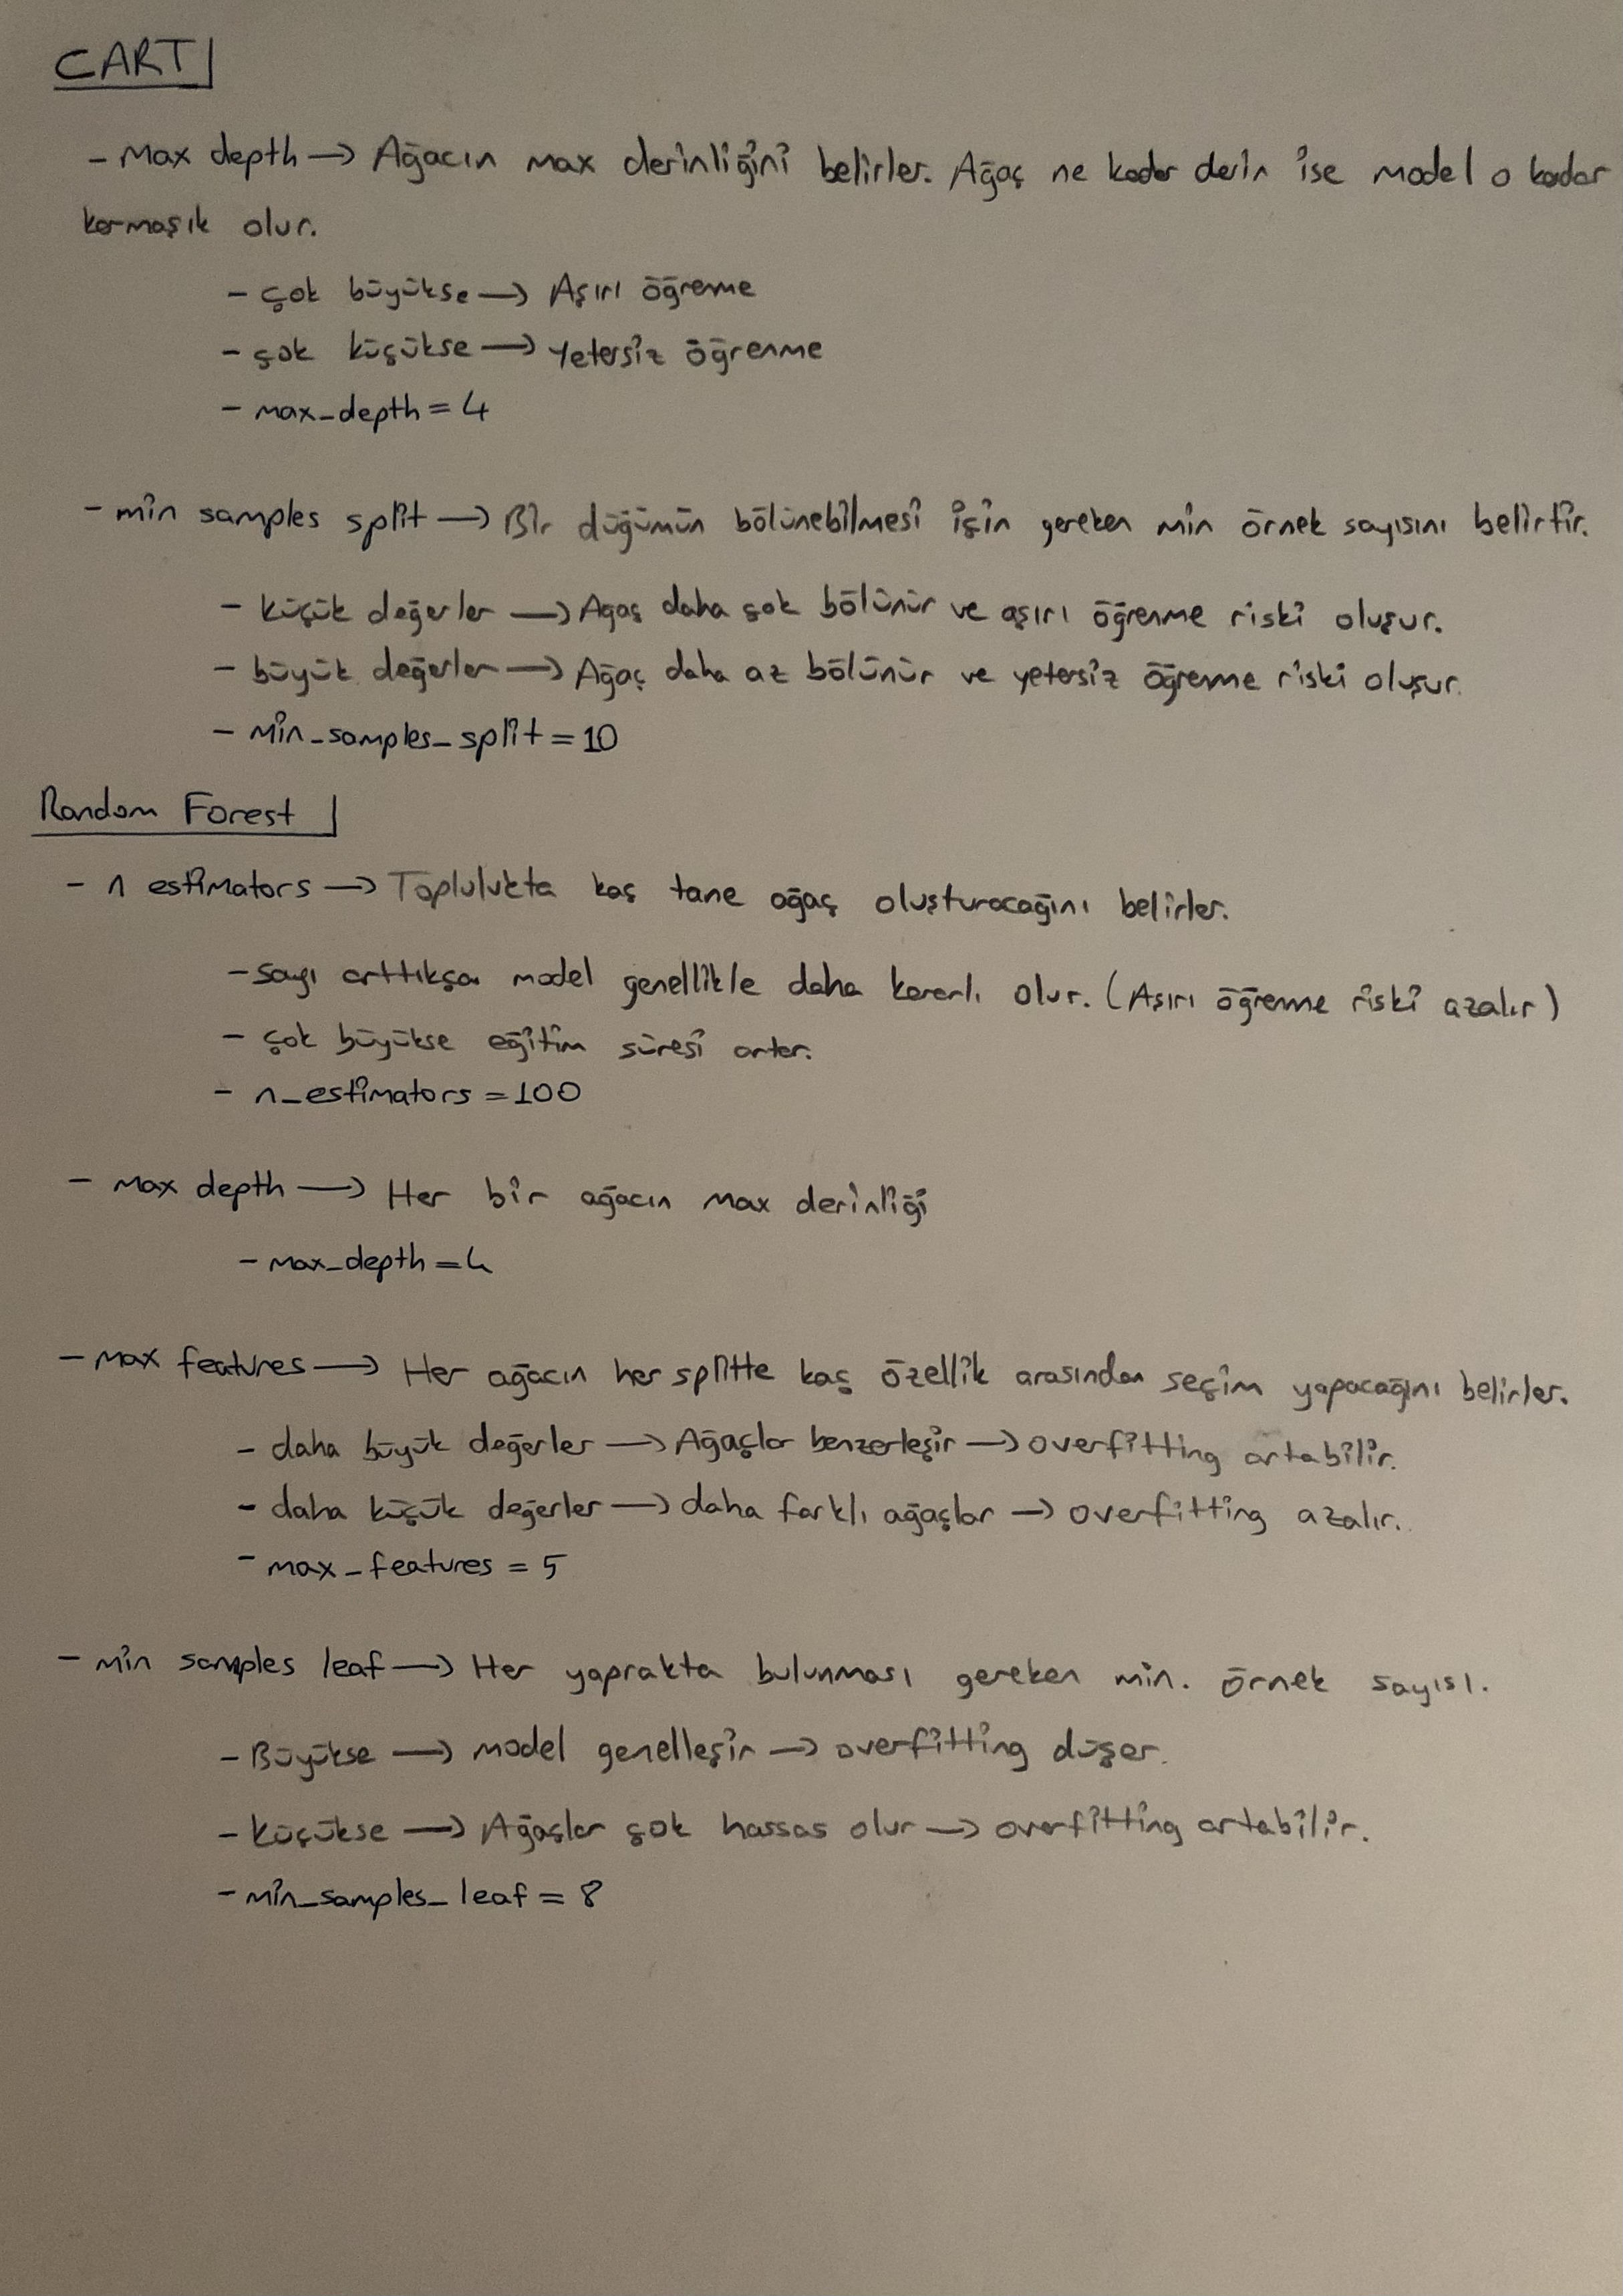 CART
- Max depth → Ağacın max derinliğini belirler. Ağaç ne kadar derin ise model o kadar
karmaşık olur.
- çok büyükse → Aşırı öğreme
- çok küçükse → Yetersiz öğrenme
- max_depth = 4
- min samples split → Bir düğümün bölünebilmesi için gereken min örnek sayısını belirtir.
- küçük değerler → Agaç daha çok bölünür ve aşırı öğrenme riski oluşur.
- büyük değerler → Ağaç daha az bölünür ve yetersiz öğrenme riski oluşur.
- min_samples_split = 10
Random Forest
- n estimators → Toplulukta kaç tane ağaç oluşturacağını belirler.
- sayı arttıkça model genellikle daha kararlı olur. (Aşırı öğrenme riski azalır)
- çok büyükse eğitim süresi artar.
- n_estimators = 100
- Max depth → Her bir ağacın max derinliği
- max_depth = 4
- max features → Her ağacın her splitte kaç özellik arasından seçim yapacağını belirler.
- daha büyük değerler → Ağaçlar benzerleşir → overfitting artabilir.
- daha küçük değerler → daha farklı ağaçlar → overfitting azalır.
- max_features = 5
- min samples leaf → Her yaprakta bulunması gereken min. örnek sayısı.
- Büyükse → model genelleşir → overfitting düşer.
- Küçükse → Ağaçlar çok hassas olur → overfitting artabilir.
- min_samples_leaf = 8